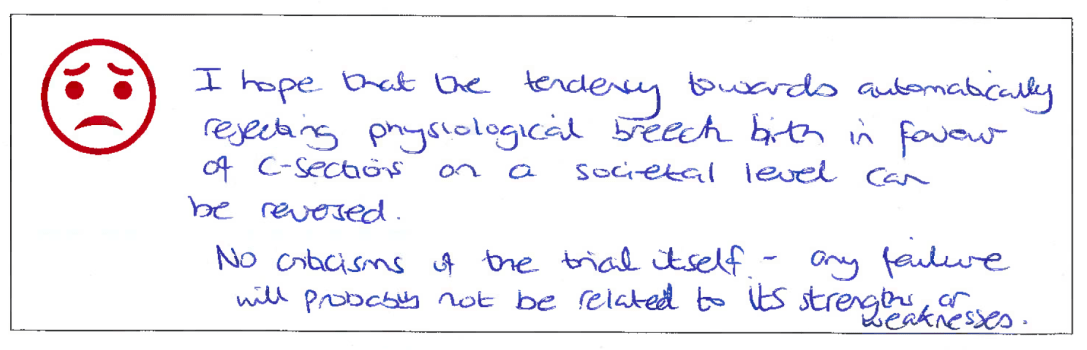 I hope that the tendency towards automatically
rejecting physiological breech birth in favour
of C-sections on a societal level can
be reversed.
No criticisms of the trial itself - any failure
will probably not be related to its strengths or
weaknesses.